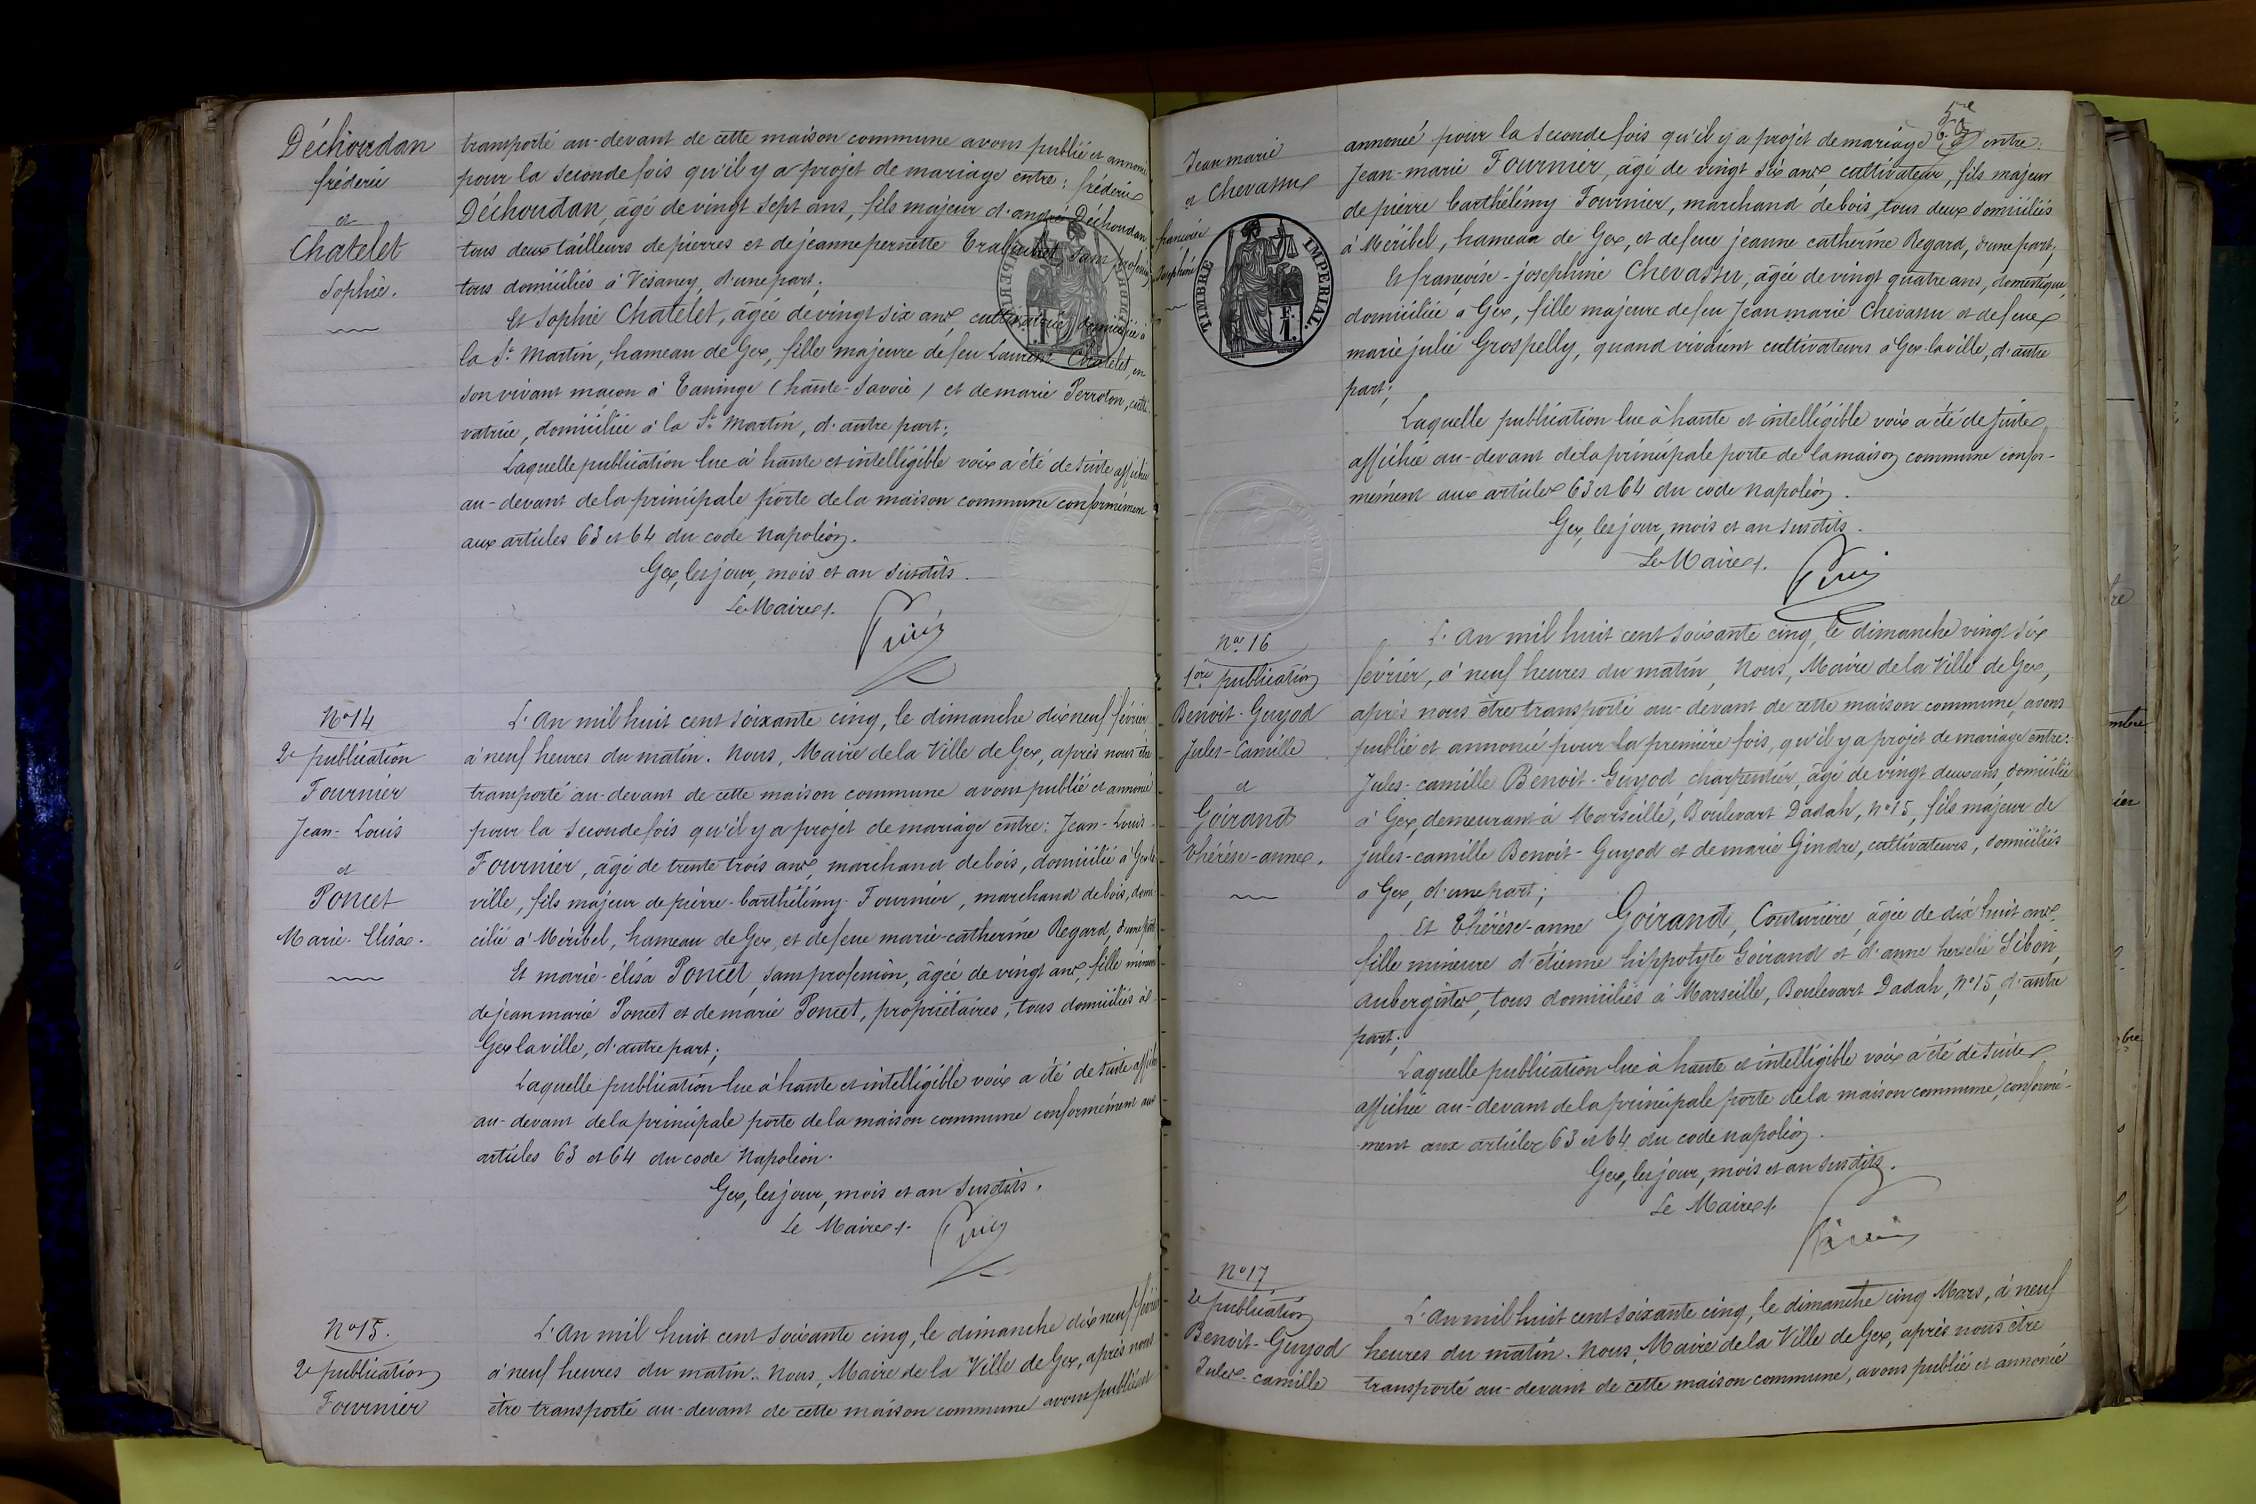 Déchoudan
fréderic
et
Chatelet
Sophie.
transporté au-devant de cette maison commune avons publié et annoncé
pour la seconde fois qu'il y a projet de mariage entre: fréderic
Déchoudan, âgé de vingt sept ans, fils majeur d'andré Déchoudan
tous deux tailleurs de pierres et de jeanne pernette sans profession,
tous domiciliés à Vésancy, d'une part;
Et Sophie Chatelet, âgée de vingt six ans, cultivatrice, domiciliée à
la St Martin, hameau de Gex, fille majeure de feu Laurent Chatelet, en
son vivant maçon à Taninge (haute-Savoie) et de marie Perroton, culti-
vatrice, domiciliée à la St Martin, d'autre part;
Laquelle publication lue à haute et intelligible voix a été de suite affichée
au-devant de la principale porte de la maison commune conformément
aux articles 63 et 64 du code Napoléon.
Gex, les jour, mois et an susdits.
Le Maire
No 14
2e publication
Fournier
Jean-Louis
et
Poncet
Marie-Elisa.
L'An mil huit cent soixante cinq, le dimanche dix neuf février
à neuf heures du matin. Nous, Maire de la Ville de Gex, après nous être
transporté au-devant de cette maison commune avons publié et annoncé
pour la seconde fois qu'il y a projet de mariage entre: Jean-Louis
Fournier, âgé de trente trois ans, marchand de bois, domicilié à Gex la
ville, fils majeur de pierre-barthélimy Fournier, marchand de bois, domi-
cilié à Méribel, hameau de Gex, et de feue marie-catherine Regard, d'une part
Et marie-élisa Poncet, sans profession, âgée de vingt ans, fille mineure
de jean marie Poncet et de marie Poncet, propriétaires, tous domiciliés à
Gex la ville, d'autre part;
Laquelle publication lue à haute et intelligible voix a été de suite affichée
au-devant de la principale porte de la maison commune conformément aux
articles 63 et 64 du code Napoléon.
Gex, les jour, mois et an susdits.
Le Maire
No 15.
2e publication
Fournier
L'An mil huit cent soixante cinq, le dimanche dix neuf février
à neuf heures du matin. Nous, Maire de la Ville de Gex, après nous
être transporté au-devant de cette maison commune avons publié et
Jean marie
et Chevassu
françoise
Joséphine
TIMBRE IMPERIAL.
1F.
annoncé pour la seconde fois qu'il y a projet de mariage entre:
Jean-marie Fournier, âgé de vingt six ans, cultivateur, fils majeur
de pierre barthélimy Fournier, marchand de bois, tous deux domiciliés
à Méribel, hameau de Gex, et de feue jeanne catherine Regard, d'une part;
Et françoise-josephine Chevassu, âgée de vingt quatre ans, domestique,
domiciliée à Gex, fille majeure de feu Jean marie Chevassu et de feue
marie julie Grospelly, quand vivaient cultivateurs à Gex la ville, d'autre
part;
Laquelle publication lue à haute et intelligible voix a été de suite
affichée au-devant de la principale porte de la maison commune confor-
mément aux articles 63 et 64 du code Napoléon.
Gex, les jour, mois et an susdits.
Le Maire
No 16
1ère publication
Benoit-Guyod
Jules-Camille
et
Goirand
thérèse-anne.
L'An mil huit cent soixante cinq, le dimanche vingt six
février, à neuf heures du matin, Nous, Maire de la Ville de Gex,
après nous être transporté au-devant de cette maison commune, avons
publié et annoncé pour la première fois, qu'il y a projet de mariage entre:
Jules-camille Benoit-Guyod, charpentier, âgé de vingt deux ans, domicilié
à Gex, demeurant à Marseille, Boulevart Dadah, no 15, fils majeur de
jules-camille Benoit-Guyod et de marie Gindre, cultivateurs, domiciliés
à Gex, d'une part;
Et thérèse-anne Goirand, Couturière, âgée de dix huit ans,
fille mineure d'étienne hippolyte Goirand et d'anne hersélie Sibon,
aubergistes, tous domiciliés à Marseille, Boulevart Dadah, no 15, d'autre
part;
Laquelle publication lue à haute et intelligible voix a été de suite
affichée au-devant de la principale porte de la maison commune, conformé-
-ment aux articles 63 et 64 du code napoléon.
Gex, les jour, mois et an susdits.
Le Maire
No 17
2e publication
Benoit-Guyod
Jules-camille
L'An mil huit cent soixante cinq, le dimanche cinq Mars, à neuf
heures du matin. Nous, Maire de la Ville de Gex, après nous être
transporté au-devant de cette maison commune, avons publié et annoncé